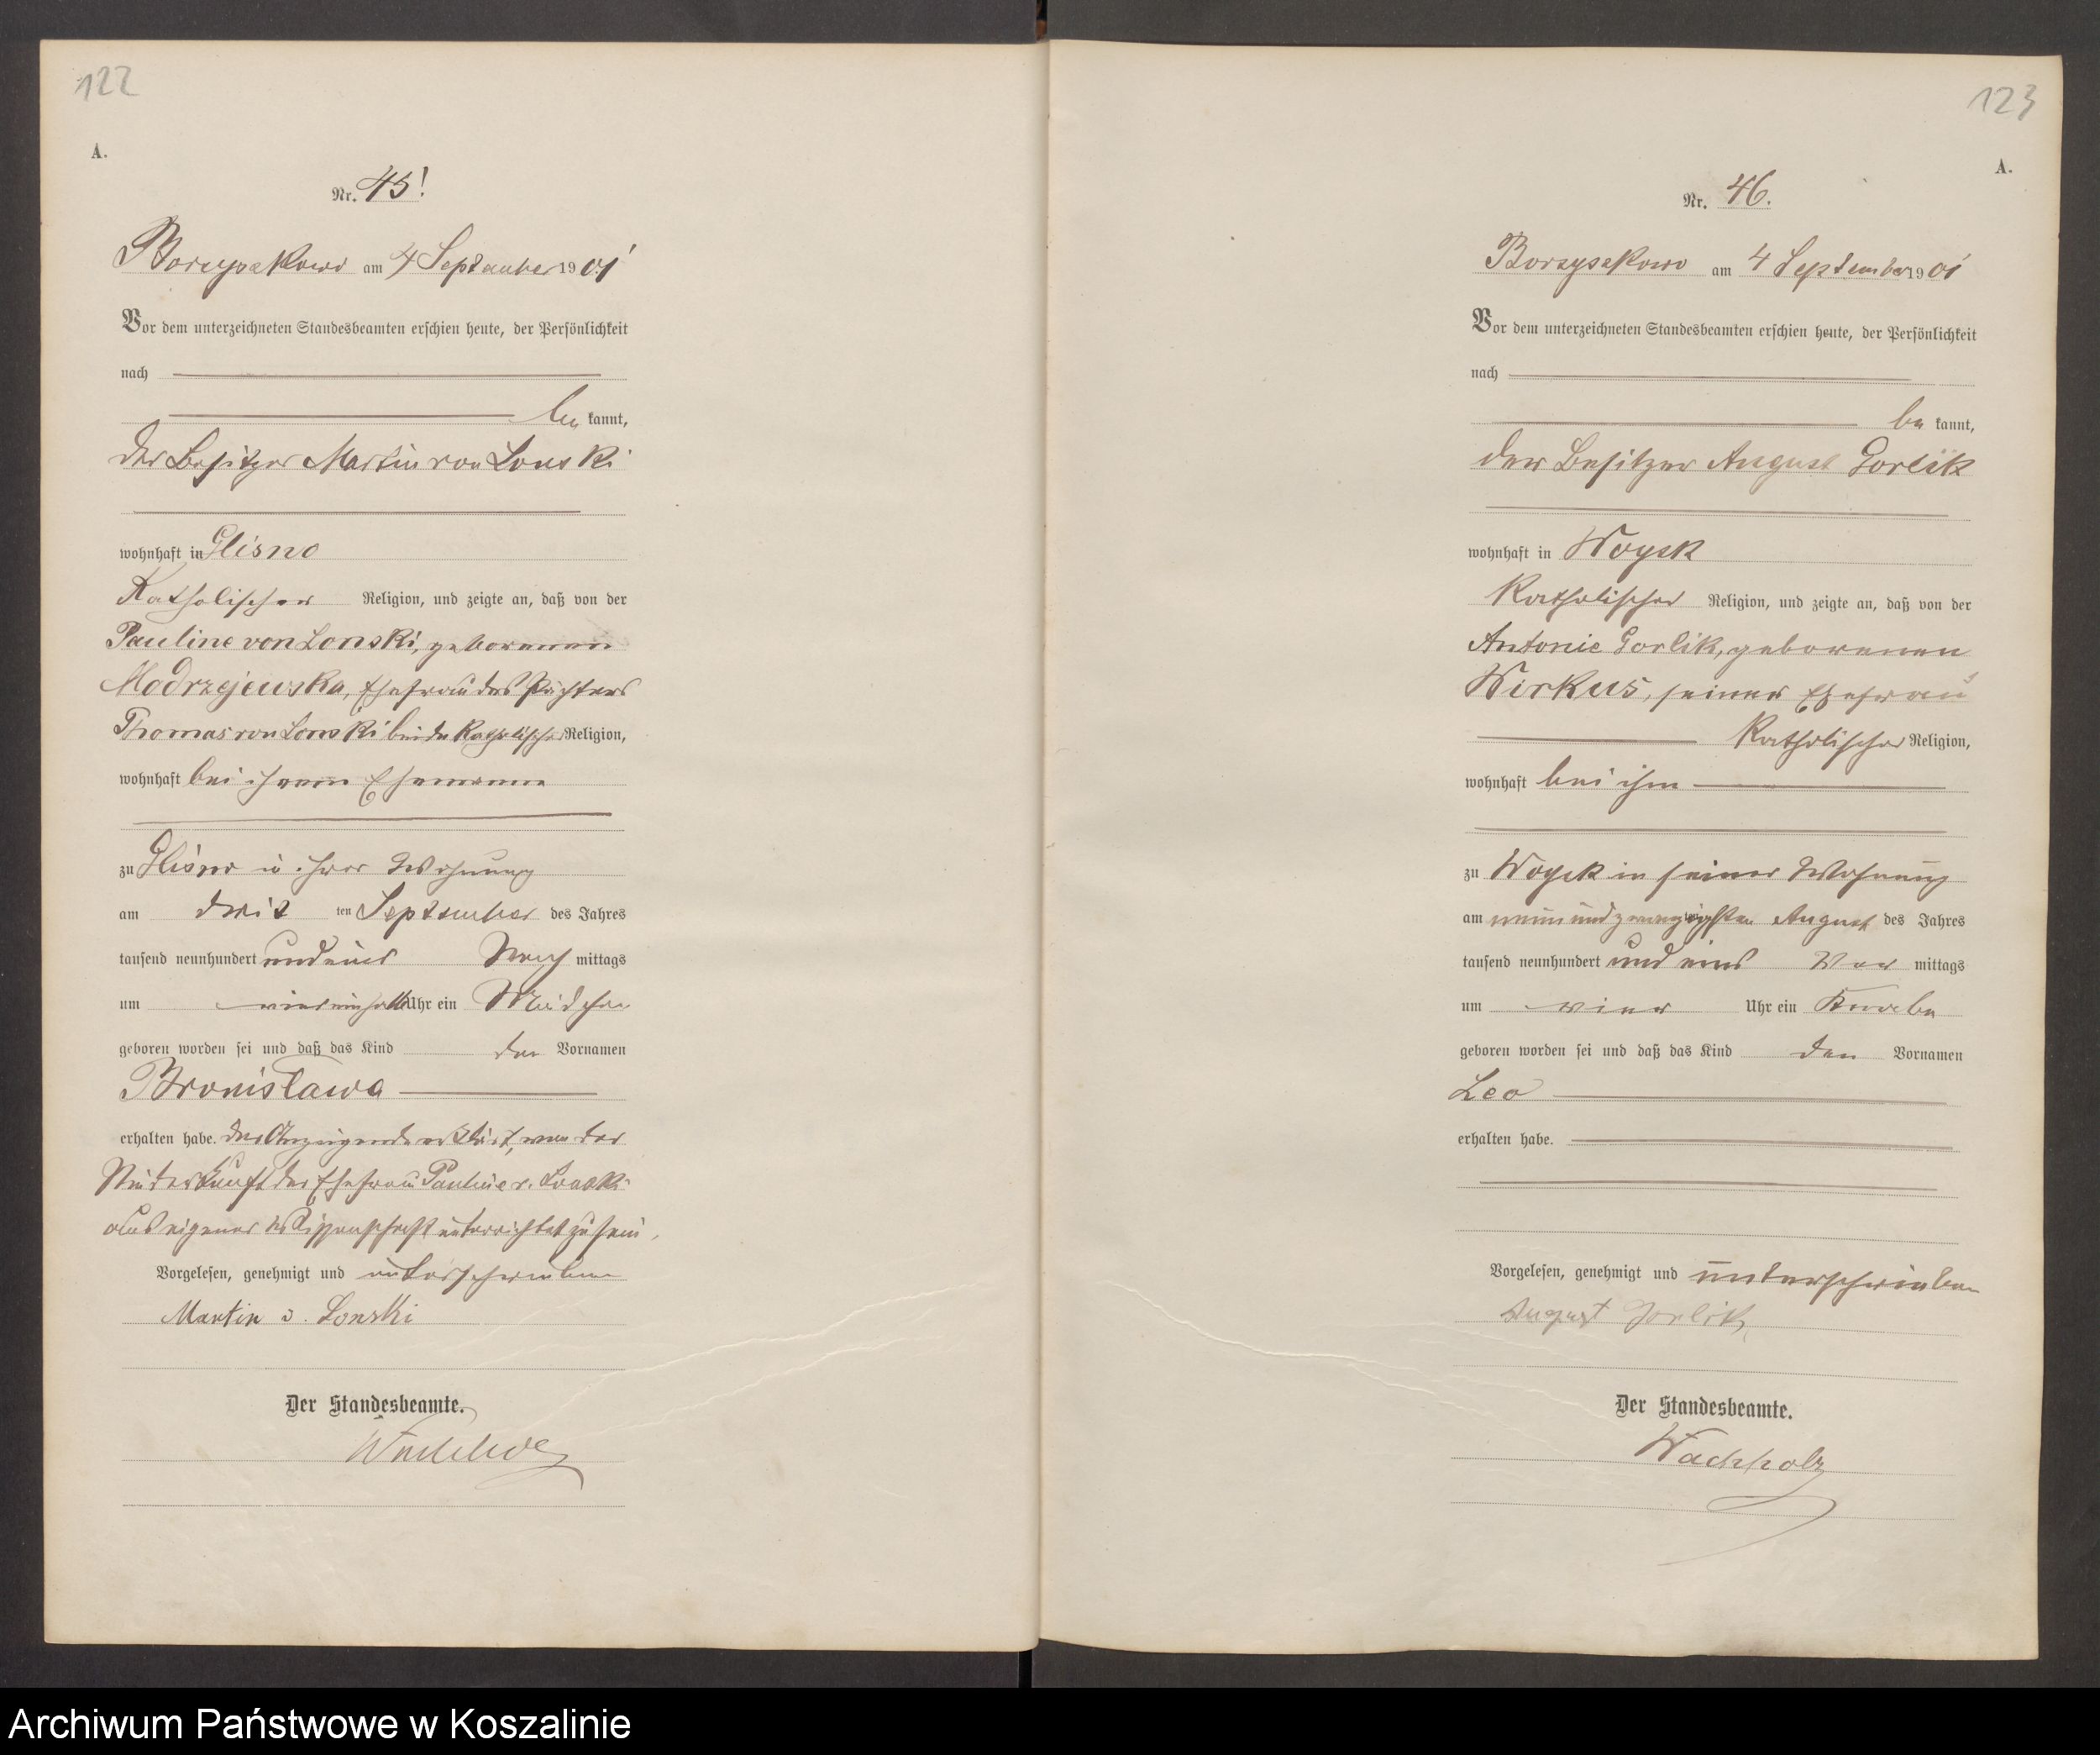 122
A.
Nr. 45!
Borzyskowo am 4 September 1901
Vor dem unterzeichneten Standesbeamten erschien heute, der Persönlichkeit
nach
be kannt,
der Besitzer Martin von Lonski
wohnhaft in Glisno
Katholischer Religion, und zeigte an, daß von der
Pauline von Lonski, geborenen
Modrzejewska, Ehefrau des Pächters
Thomas von Lonski beide Katholischer Religion,
wohnhaft bei ihrem Ehemanne
zu Glisno in ihrer Wohnung
am dritten September des Jahres
tausend neunhundert und eins Nach mittags
um viereinhalb Uhr ein Mädchen
geboren worden sei und daß das Kind den Vornamen
Bronislawa
erhalten habe. Der Anzeigende erklärt, von der
Niederkunft der Ehefrau Pauline v. Lonski
aus eigener Wissenschaft unterrichtet zu sein.
Vorgelesen, genehmigt und unterschrieben
Martin v. Lonski
Der Standesbeamte.
Wachholz
123
A.
Nr. 46.
Borzyskowo am 4 September 1901
Vor dem unterzeichneten Standesbeamten erschien heute, der Persönlichkeit
nach
be kannt,
der Besitzer August Gorlik
wohnhaft in Woysk
Katholischer Religion, und zeigte an, daß von der
Antonie Gorlik, geborenen
Wirkus, seiner Ehefrau
Katholischer Religion,
wohnhaft bei ihm
zu Woysk in seiner Wohnung
am neunundzwanzigsten August des Jahres
tausend neunhundert und eins Vor mittags
um vier Uhr ein Knabe
geboren worden sei und daß das Kind den Vornamen
Leo
erhalten habe.
Vorgelesen, genehmigt und unterschrieben
August Gorlik
Der Standesbeamte.
Wachholz
Archiwum Państwowe w Koszalinie